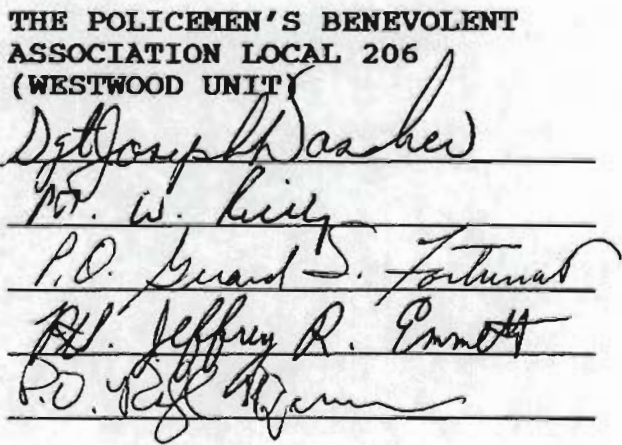 THE POLICEMEN'S BENEVOLENT
ASSOCIATION LOCAL 206
(WESTWOOD UNIT)
Sgt Joseph Dascher
W. Reilly
P.O. Gerard S. Fortunato
Jeffrey R. Emmett
P.O.